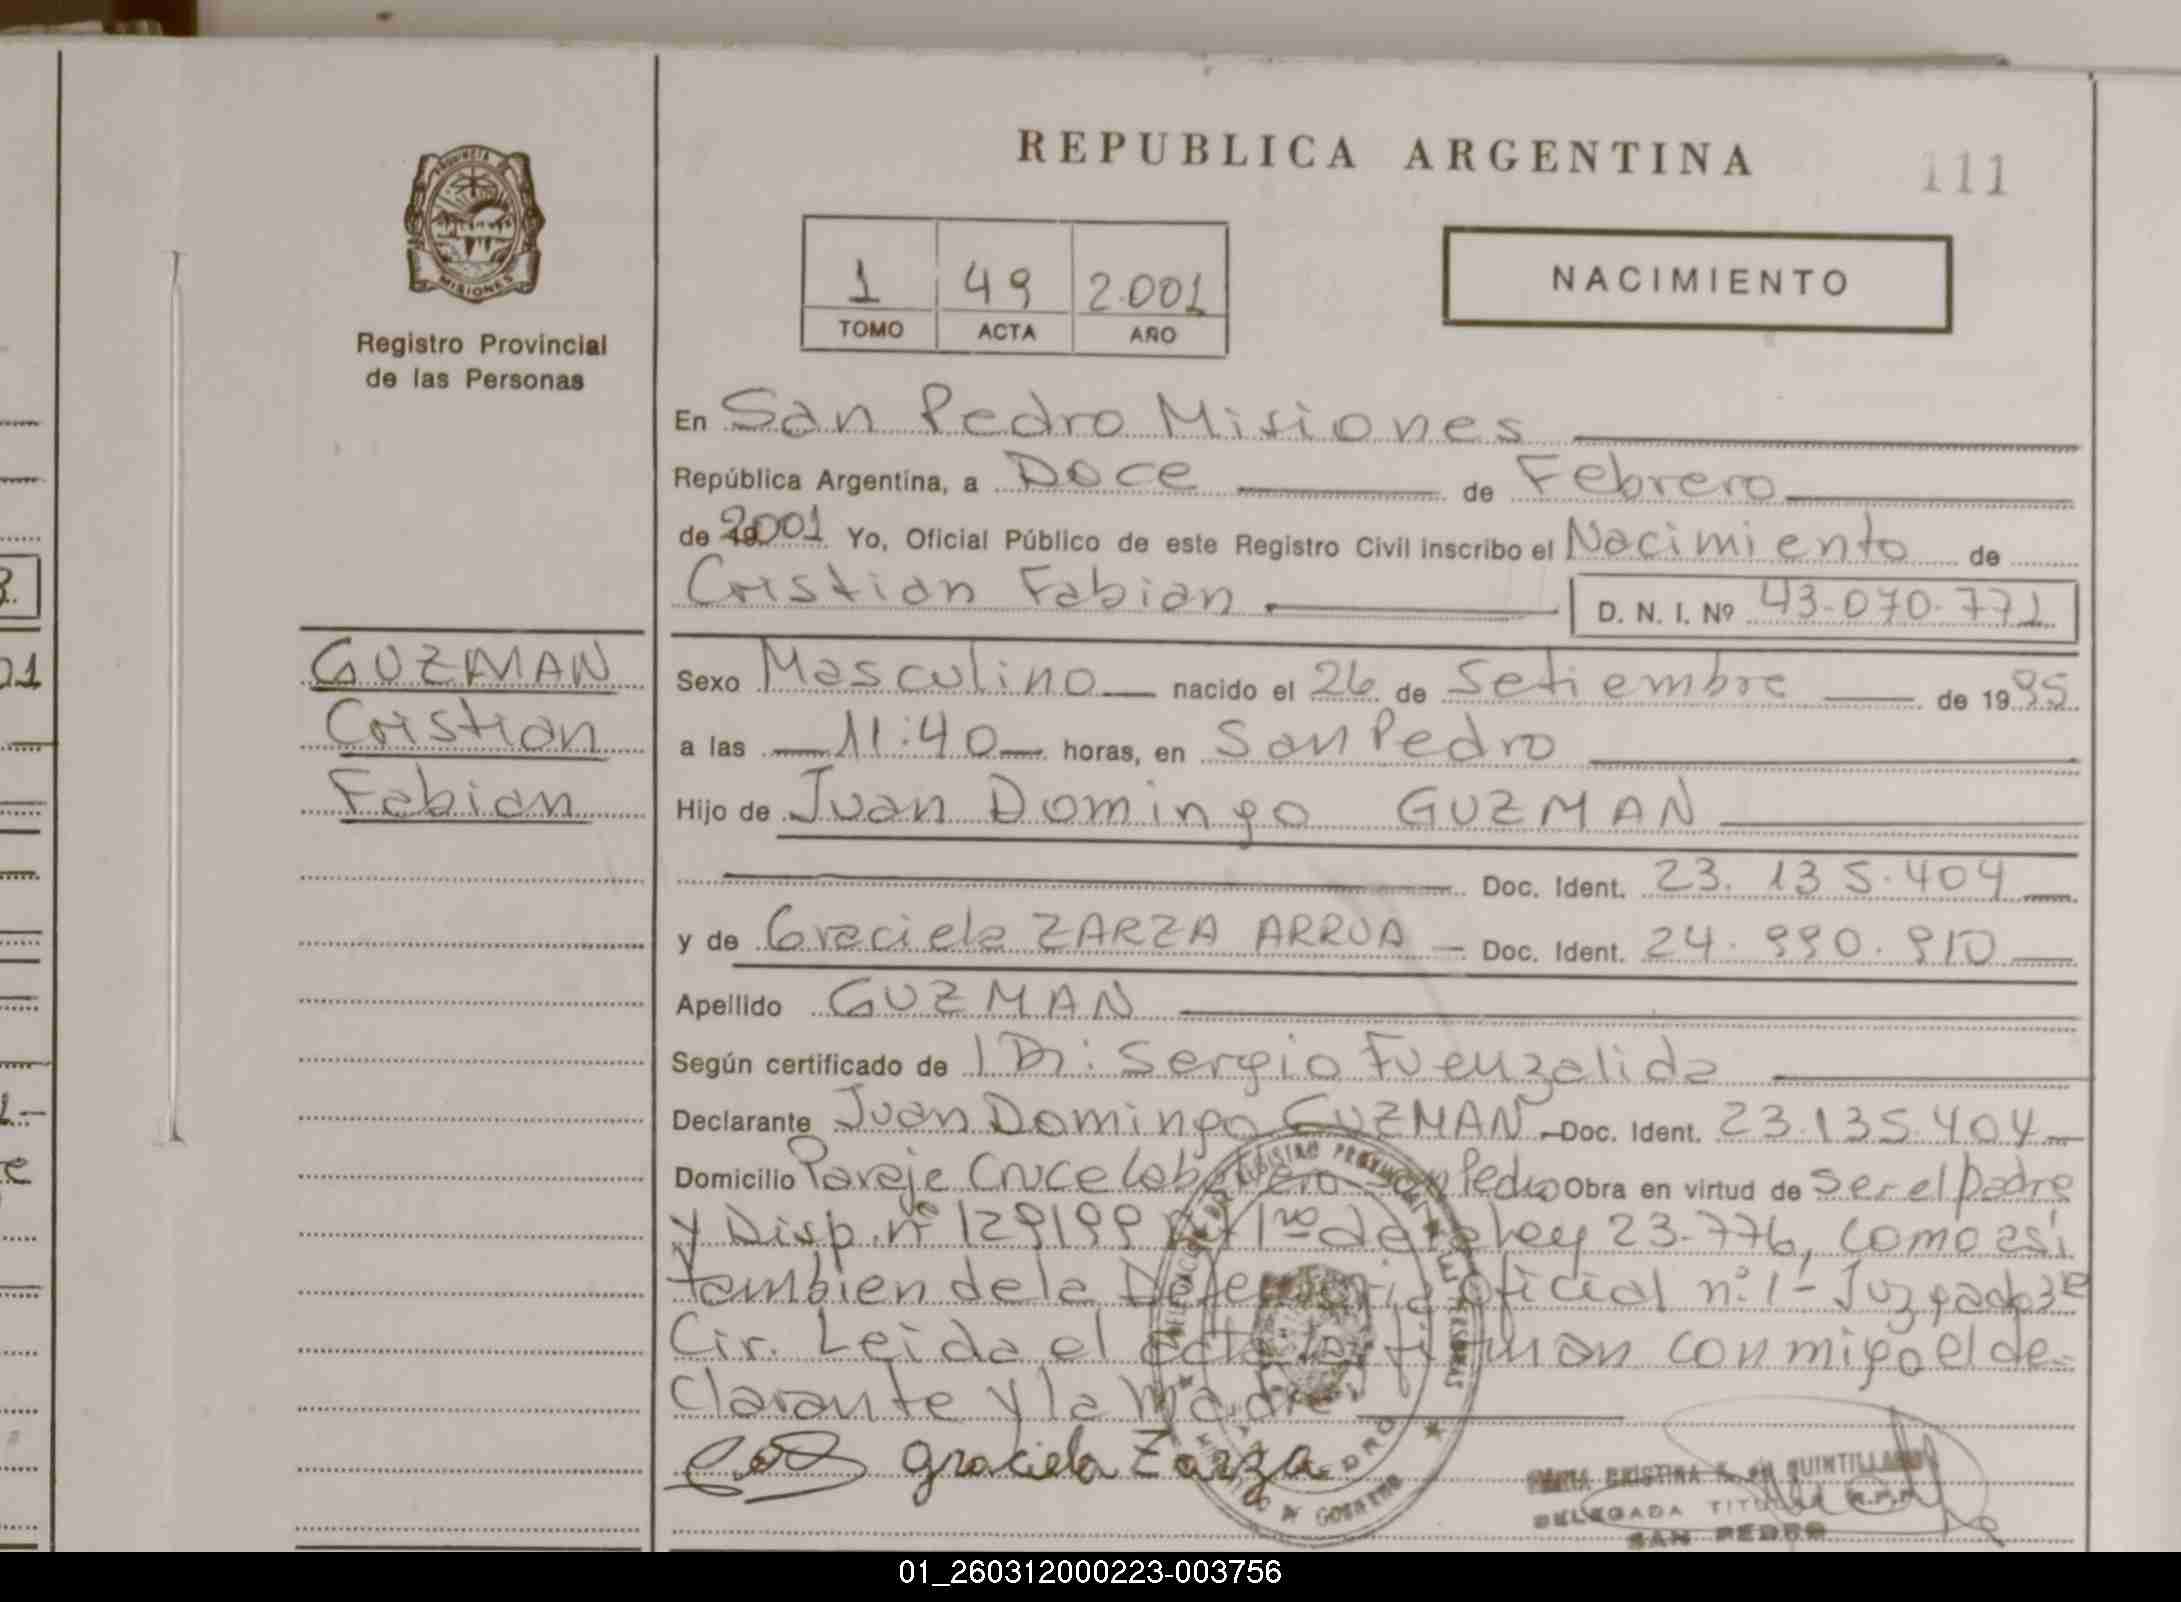 REPUBLICA ARGENTINA
111
PROVINCIA DE
MISIONES
Registro Provincial
de las Personas
1 49 2.001
TOMO ACTA AÑO
NACIMIENTO
En San Pedro Misiones
República Argentina, a Doce de Febrero
de 2001 Yo, Oficial Público de este Registro Civil inscribo el Nacimiento de
Cristian Fabian D. N. I. Nº 43.070.771
GUZMAN
Cristian
Fabian
Sexo Masculino nacido el 26 de Setiembre de 1995
a las 11:40 horas, en San Pedro
Hijo de Juan Domingo GUZMAN
Doc. Ident. 23.135.404
y de Graciela ZARZA ARRUA Doc. Ident. 24.990.910
Apellido GUZMAN
Según certificado de Dr: Sergio Fuenzalida
Declarante Juan Domingo GUZMAN Doc. Ident. 23.135.404
Domicilio Paraje Cruce Pedro Obra en virtud de ser el padre
y Disp. nº 129199 1ro de la ley 23.776, como asi
tambien de la Defensoria oficial nº 1 - Juzgado 3ª
Cir. Leida el acta la firman conmigo el de-
clarante y la Madre
graciela Zarza
MARIA CRISTINA DE QUINTILLANO
DELEGADA TITULAR R.P.P.
SAN PEDRO
01_260312000223-003756